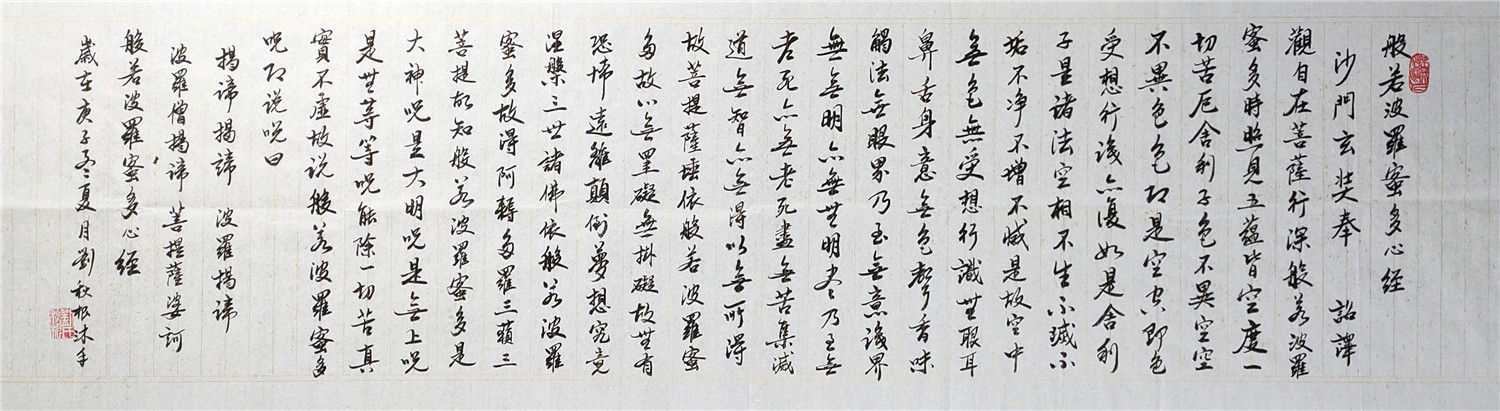 般若波羅蜜多心經
沙門玄奘奉 詔譯
觀自在菩薩行深般若波羅
蜜多時照見五蘊皆空度一
切苦厄舍利子色不異空空
不異色色即是空空即色
受想行識亦復如是舍利
子是諸法空相不生不滅不
垢不净不增不減是故空中
無色無受想行識無眼耳
鼻舌身意無色聲香味
觸法無眼界乃至無意識界
無無明亦無無明盡乃至無
老死亦無老死盡無苦集滅
道無智亦無得以無所得
故菩提薩埵依般若波羅蜜
多故心無罣礙無掛礙故無有
恐怖遠離顛倒夢想究竟
涅槃三世諸佛依般若波羅
蜜多故得阿耨多羅三藐三
菩提故知般若波羅蜜多是
大神咒是大明咒是無上咒
是無等等咒能除一切苦真
實不虛故說般若波羅蜜多
咒即說咒曰
揭諦揭諦 波羅揭諦
波羅僧揭諦 菩提薩婆訶
般若波羅蜜多心經
歲在庚子夏月劉秋松沐手